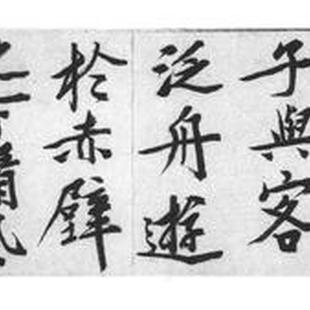 子與客
泛舟遊
於赤壁
之下清風